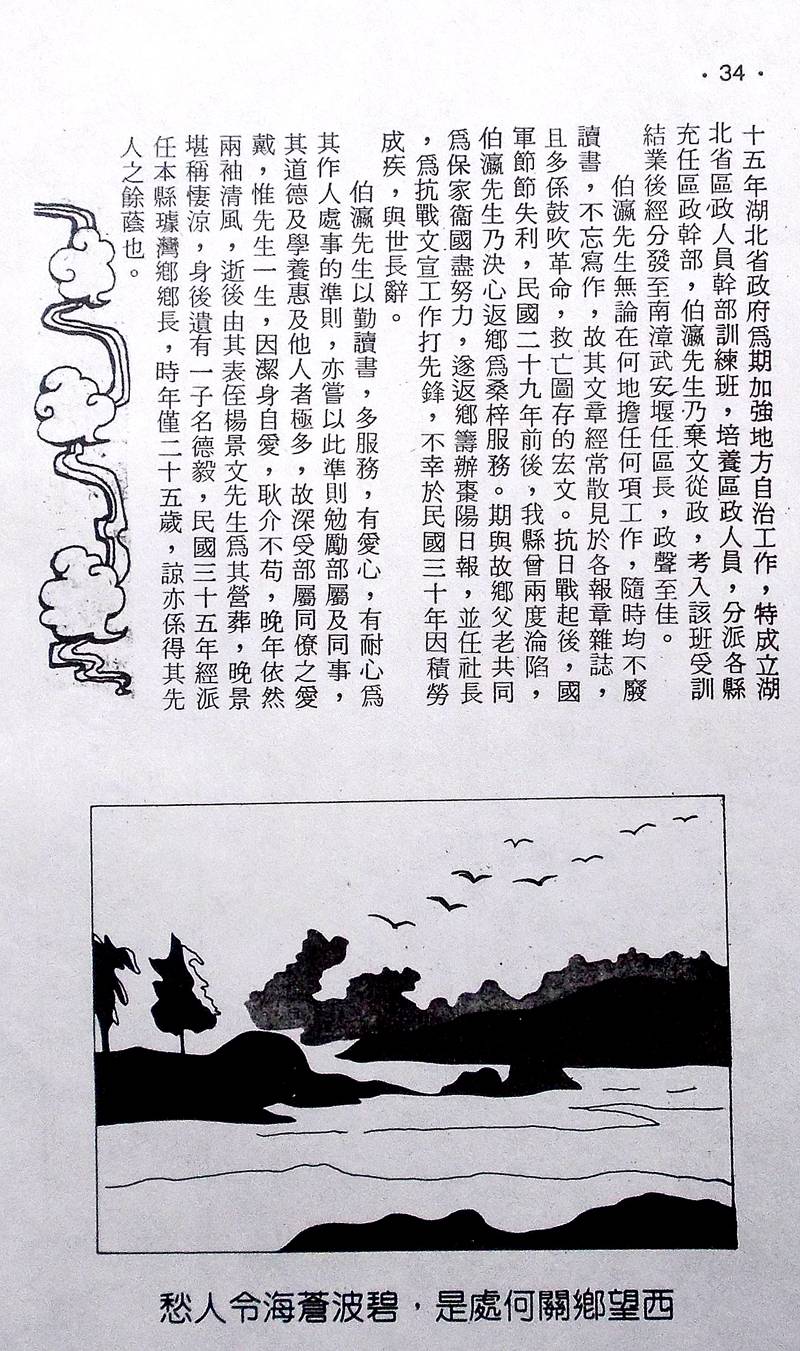 • 34 •
十五年湖北省政府爲期加強地方自治工作，特成立湖
北省區政人員幹部訓練班，培養區政人員，分派各縣
充任區政幹部，伯瀛先生乃棄文從政，考入該班受訓
結業後經分發至南漳武安堰任區長，政聲至佳。
伯瀛先生無論在何地擔任何項工作，隨時均不廢
讀書，不忘寫作，故其文章經常散見於各報章雜誌，
且多係鼓吹革命，救亡圖存的宏文。抗日戰起後，國
軍節節失利，民國二十九年前後，我縣曾兩度淪陷，
伯瀛先生乃決心返鄉爲桑梓服務。期與故鄉父老共同
爲保家衞國盡努力，遂返鄉籌辦棗陽日報，並任社長
，爲抗戰文宣工作打先鋒，不幸於民國三十年因積勞
成疾，與世長辭。
伯瀛先生以勤讀書，多服務，有愛心，有耐心爲
其作人處事的準則，亦嘗以此準則勉勵部屬及同事，
其道德及學養惠及他人者極多，故深受部屬同僚之愛
戴，惟先生一生，因潔身自愛，耿介不苟，晚年依然
兩袖清風，逝後由其表侄楊景文先生爲其營葬，晚景
堪稱悽涼，身後遺有一子名德毅，民國三十五年經派
任本縣璩灣鄉鄉長，時年僅二十五歲，諒亦係得其先
人之餘蔭也。
西望鄉關何處是，碧波蒼海令人愁